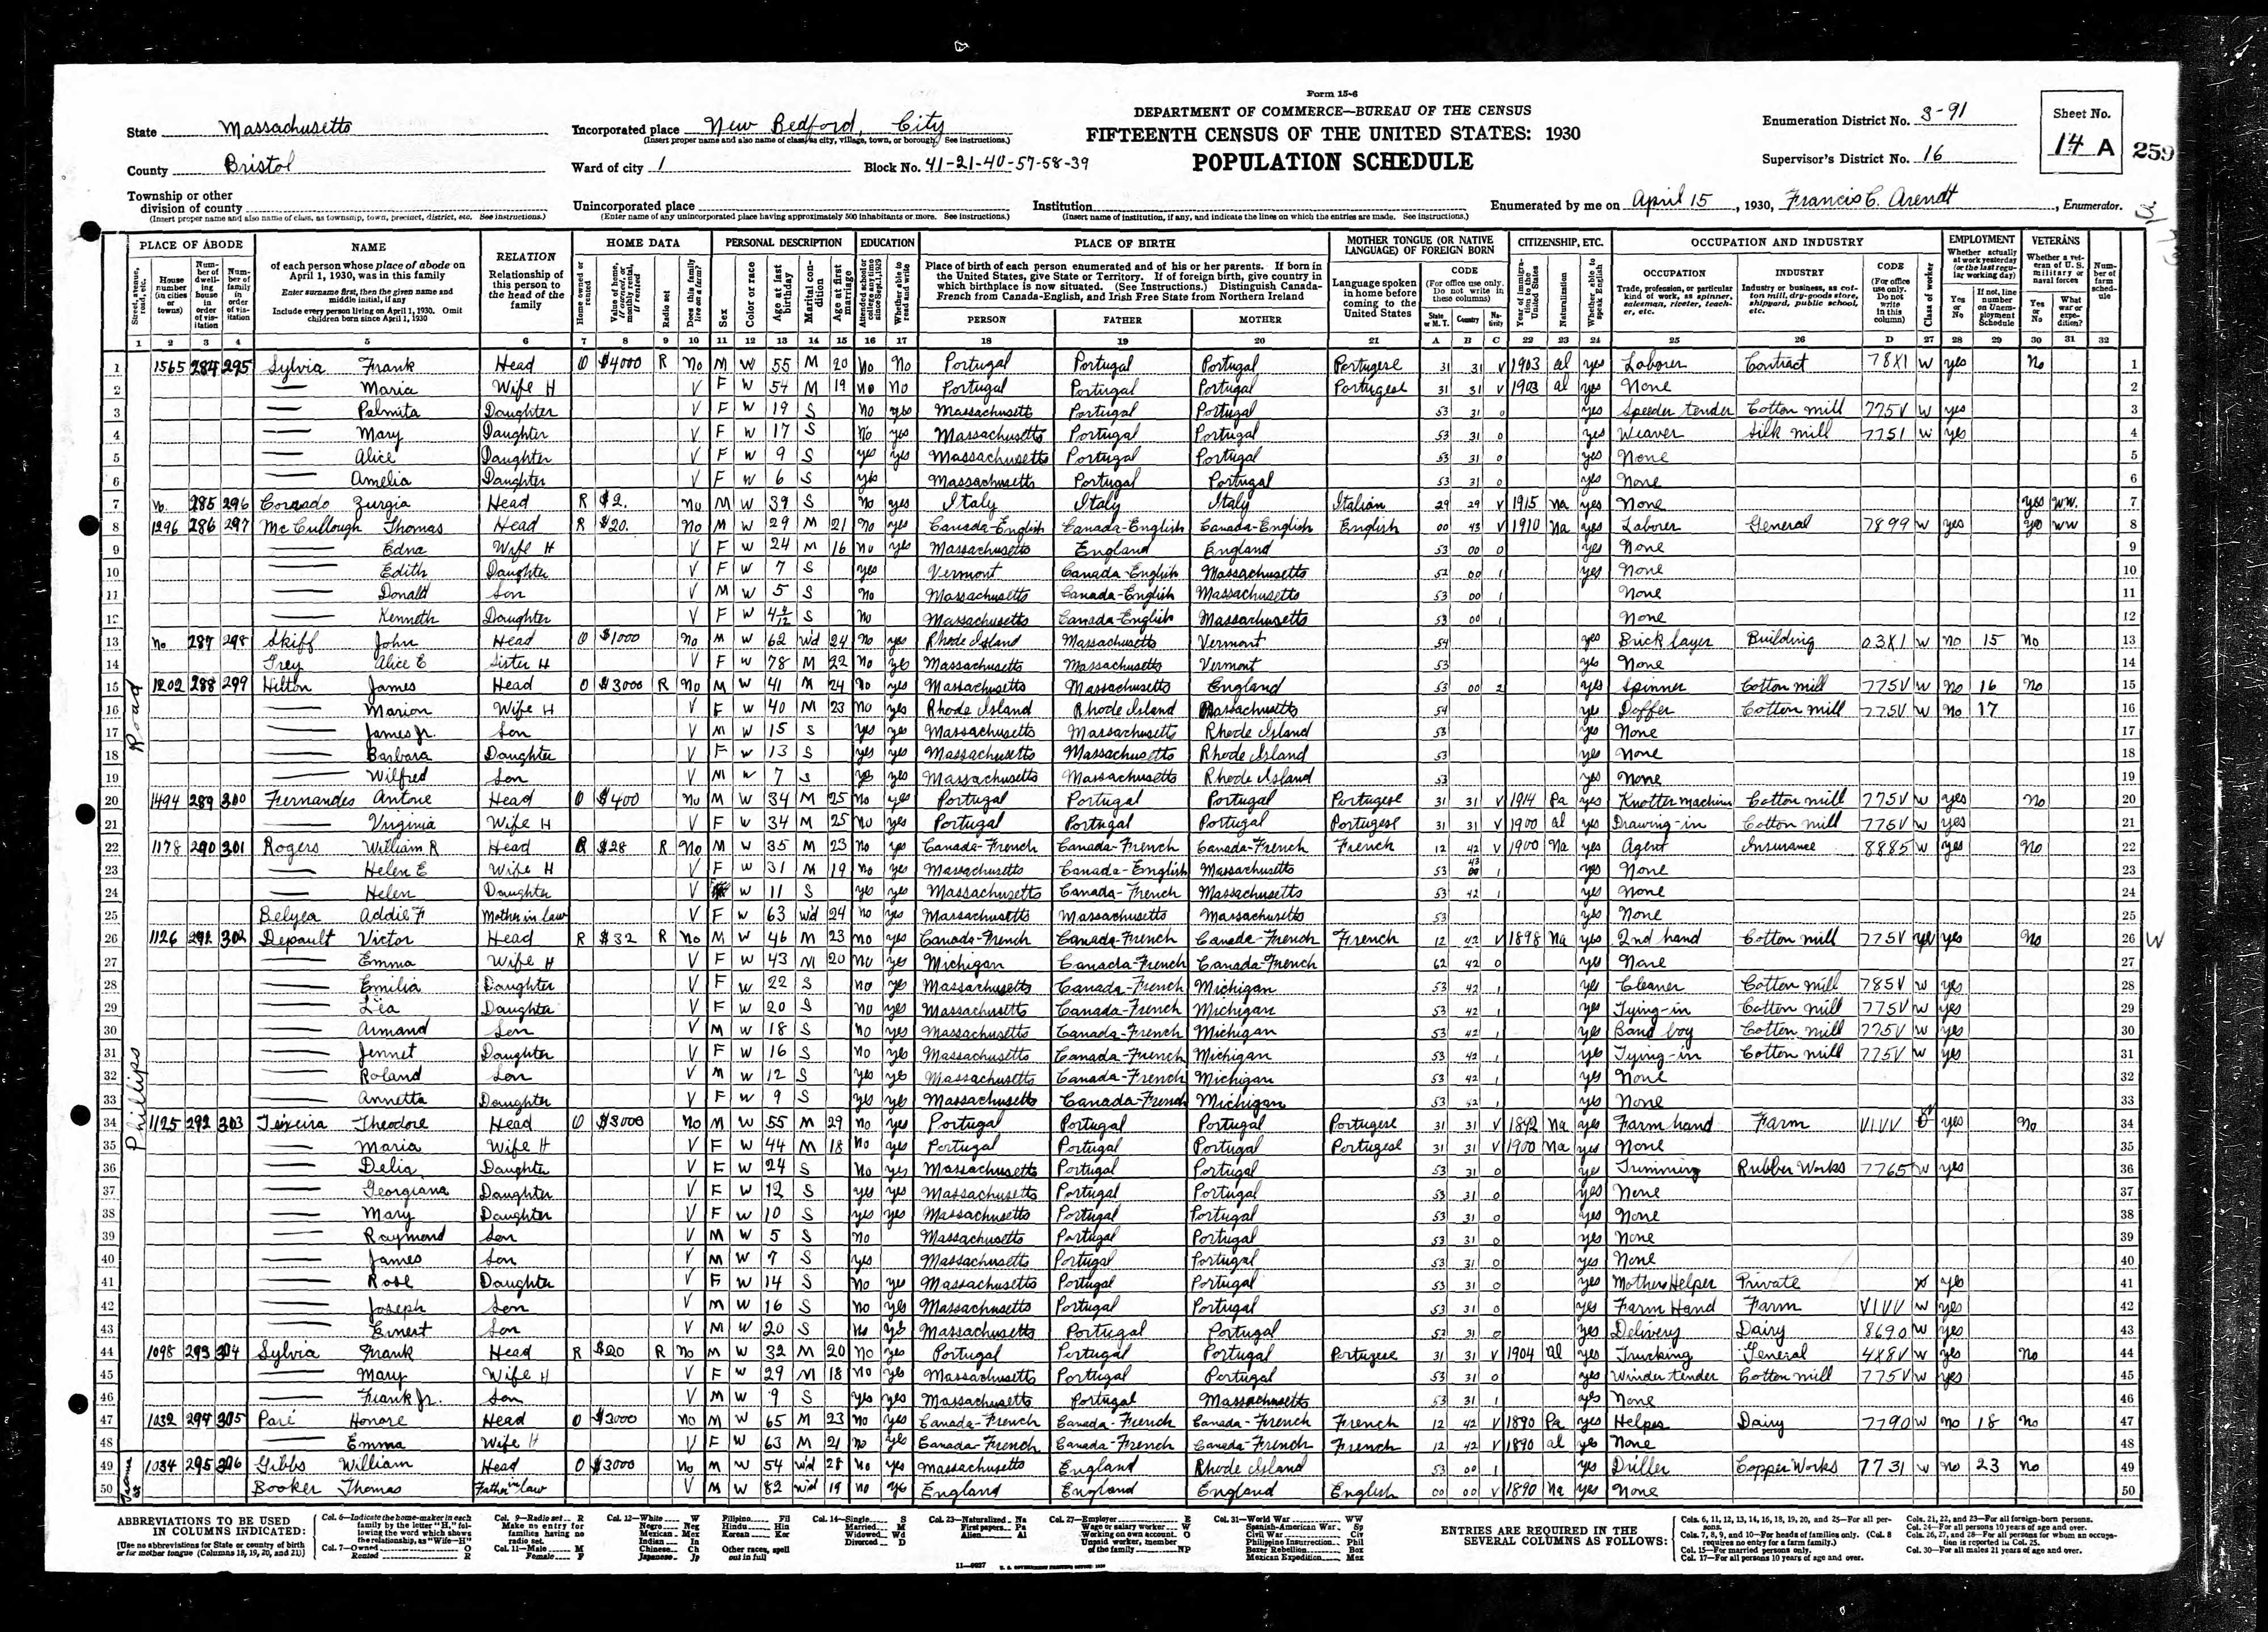 Form 15-6
DEPARTMENT OF COMMERCE—BUREAU OF THE CENSUS
FIFTEENTH CENSUS OF THE UNITED STATES: 1930
POPULATION SCHEDULE
State Massachusetts
County Bristol
Township or other division of county
(Insert proper name and also name of class, as township, town, precinct, district, etc. See instructions.)
Incorporated place New Bedford, City
(Insert proper name and also name of class, as city, village, town, or borough. See instructions.)
Ward of city 1 Block No. 41-21-40-57-58-39
Unincorporated place
(Enter name of any unincorporated place having approximately 500 inhabitants or more. See instructions.)
Institution
(Insert name of institution, if any, and indicate the lines on which the entries are made. See instructions.)
Enumeration District No. 3-91
Supervisor's District No. 16
Sheet No. 14 A 259
Enumerated by me on April 15, 1930, Francis C. Arendt, Enumerator.
PLACE OF ABODE NAME RELATION HOME DATA PERSONAL DESCRIPTION EDUCATION PLACE OF BIRTH MOTHER TONGUE (OR NATIVE LANGUAGE) OF FOREIGN BORN CITIZENSHIP, ETC. OCCUPATION AND INDUSTRY EMPLOYMENT VETERANS
1 2 3 4 5 6 7 8 9 10 11 12 13 14 15 16 17 18 19 20 21 A B C 22 23 24 25 26 D 27 28 29 30 31 32
Phillips Road
1 1565 284 295 Sylvia Frank Head O $4000 R No M W 55 M 20 No No Portugal Portugal Portugal Portugese 31 31 V 1903 al yes Laborer Contract 78X1 W yes No 1
2 — Maria Wife H V F W 54 M 19 no No Portugal Portugal Portugal Portugese 31 31 V 1903 al yes None 2
3 — Palmita Daughter V F W 19 S No yes Massachusetts Portugal Portugal 53 31 0 yes Speeder tender Cotton mill 775V W yes 3
4 — Mary Daughter V F W 17 S No yes Massachusetts Portugal Portugal 53 31 0 yes Weaver Silk mill 7751 W yes 4
5 — Alice Daughter V F W 9 S yes yes Massachusetts Portugal Portugal 53 31 0 yes None 5
6 — Amelia Daughter V F W 6 S yes Massachusetts Portugal Portugal 53 31 0 yes None 6
7 No 285 296 Corrado Zurgia Head R $2. no M W 39 S No yes Italy Italy Italy Italian 29 29 V 1915 na yes None yes WW. 7
8 1296 286 297 McCullough Thomas Head R $20. No M W 29 M 21 No yes Canada-English Canada-English Canada-English English 00 43 V 1910 Na yes Laborer General 7899 W yes ye WW 8
9 — Edna Wife H V F W 24 M 16 no yes Massachusetts England England 53 00 0 yes None 9
10 — Edith Daughter V F W 7 S yes Vermont Canada-English Massachusetts 52 00 1 yes None 10
11 — Donald Son V M W 5 S No Massachusetts Canada-English Massachusetts 53 00 1 None 11
12 — Kenneth Daughter V F W S No Massachusetts Canada-English Massachusetts 53 00 1 None 12
13 No 287 298 Skiff John Head O $1000 No M W 62 Wd 24 No yes Rhode Island Massachusetts Vermont 54 yes Brick layer Building 03X1 W no 15 No 13
14 Frey Alice E Sister H V F W 78 M 22 No yes Massachusetts Massachusetts Vermont 53 yes None 14
15 1202 288 299 Hilton James Head O $3000 R No M W 41 M 24 No yes Massachusetts Massachusetts England 53 00 2 yes Spinner Cotton mill 775V W No 16 No 15
16 — Marion Wife H V F W 40 M 23 no yes Rhode Island Rhode Island Massachusetts 54 yes Doffer Cotton mill 775V W No 17 16
17 — James Jr. Son V M W 15 S yes yes Massachusetts Massachusetts Rhode Island 53 yes None 17
18 — Barbara Daughter V F W 13 S yes yes Massachusetts Massachusetts Rhode Island 53 yes None 18
19 — Wilfred Son V M W 7 S yes yes Massachusetts Massachusetts Rhode Island 53 yes None 19
20 1494 289 300 Fernandes Antone Head O $400 no M W 34 M 25 No yes Portugal Portugal Portugal Portugese 31 31 V 1914 Pa yes Knotter machine Cotton mill 775V W yes No 20
21 — Virginia Wife H V F W 34 M 25 No yes Portugal Portugal Portugal Portugese 31 31 V 1900 al yes Drawing-in Cotton mill 775V W yes 21
22 1178 290 301 Rogers William R Head R $28 R No M W 35 M 23 no yes Canada-French Canada-French Canada-French French 12 42 V 1900 Na yes Agent Insurance 8885 W yes No 22
23 — Helen E Wife H V F W 31 M 19 no yes Massachusetts Canada-English Massachusetts 53 43 1 yes None 23
24 — Helen Daughter V W 11 S yes yes Massachusetts Canada-French Massachusetts 53 42 1 yes None 24
25 Belyea Addie F Mother in law V F W 63 wd 24 no yes Massachusetts Massachusetts Massachusetts 53 yes None 25
26 1126 291 302 Depault Victor Head R $32 R No M W 46 M 23 no yes Canada-French Canada-French Canada-French French 12 42 V 1898 Na yes 2nd hand Cotton mill 775V yes No 26 W
27 — Emma Wife H V F W 43 M 20 no yes Michigan Canada-French Canada-French 62 42 0 yes None 27
28 — Emilia Daughter V F W 22 S no yes Massachusetts Canada-French Michigan 53 42 1 yes Cleaner Cotton mill 785V W yes 28
29 — Lea Daughter V F W 20 S no yes Massachusetts Canada-French Michigan 53 42 1 yes Tying-in Cotton mill 775V W yes 29
30 — Armand Son V M W 18 S no yes Massachusetts Canada-French Michigan 53 42 1 yes Band boy Cotton mill 775V W yes 30
31 — Jennet Daughter V F W 16 S no yes Massachusetts Canada-French Michigan 53 42 1 yes Tying-in Cotton mill 775V W yes 31
32 — Roland Son V M W 12 S yes yes Massachusetts Canada-French Michigan 53 42 1 yes None 32
33 — Annetta Daughter V F W 9 S yes yes Massachusetts Canada-French Michigan 53 42 1 yes None 33
34 1125 292 303 Teixeira Theodore Head O $3000 No M W 55 M 29 no yes Portugal Portugal Portugal Portugese 31 31 V 1892 Na yes Farm hand Farm V1VV yes No 34
35 — Maria Wife H V F W 44 M 18 No yes Portugal Portugal Portugal Portugese 31 31 V 1900 Na yes None 35
36 — Delia Daughter V F W 24 S No yes Massachusetts Portugal Portugal 53 31 0 yes Trimming Rubber Works 7765 W yes 36
37 — Georgiana Daughter V F W 12 S yes yes Massachusetts Portugal Portugal 53 31 0 yes None 37
38 — Mary Daughter V F W 10 S yes yes Massachusetts Portugal Portugal 53 31 0 yes None 38
39 — Raymond Son V M W 5 S no Massachusetts Portugal Portugal 53 31 0 yes None 39
40 — James Son V M W 7 S yes Massachusetts Portugal Portugal 53 31 0 yes None 40
41 — Rose Daughter V F W 14 S No yes Massachusetts Portugal Portugal 53 31 0 yes Mothers Helper Private yes 41
42 — Joseph Son V M W 16 S no yes Massachusetts Portugal Portugal 53 31 0 yes Farm Hand Farm V1VV W yes 42
43 — Ernest Son V M W 20 S no yes Massachusetts Portugal Portugal 53 31 0 yes Delivery Dairy 8690 W yes 43
44 1098 293 304 Sylvia Frank Head R $20 R No M W 32 M 20 No yes Portugal Portugal Portugal Portugese 31 31 V 1904 al yes Trucking General 4X8V W yes No 44
45 — Mary Wife H V F W 29 M 18 no yes Massachusetts Portugal Portugal 53 31 0 yes Winder tender Cotton mill 775V W yes 45
46 — Frank Jr. Son V M W 9 S yes yes Massachusetts Portugal Massachusetts 53 31 1 yes None 46
47 1032 294 305 Paré Honore Head O $2000 No M W 65 M 23 no yes Canada-French Canada-French Canada-French French 12 42 V 1890 Pa yes Helper Dairy 7790 W no 18 no 47
48 — Emma Wife H V F W 63 M 21 no yes Canada-French Canada-French Canada-French French 12 42 V 1890 al yes None 48
49 1034 295 306 Gibbs William Head O $3000 No M W 54 wd 28 no yes Massachusetts England Rhode Island 53 00 1 yes Driller Copper Works 7731 W no 23 no 49
50 Booker Thomas Father in law V M W 82 wd 19 no yes England England England English 00 00 V 1890 Na yes None 50
ABBREVIATIONS TO BE USED IN COLUMNS INDICATED:
[Use no abbreviations for State or country of birth or for mother tongue (Columns 18, 19, 20, and 21)]
ENTRIES ARE REQUIRED IN THE SEVERAL COLUMNS AS FOLLOWS: